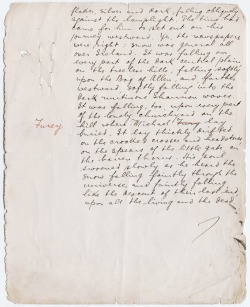 flakes, silver and dark, falling obliquely
against the lamplight. The time had
come for him to set out on his
journey westward. Yes, the newspapers
were right: snow was general all
over Ireland. It was falling on
every part of the dark central plain
on the treeless hills, falling softly
upon the Bog of Allen and, further
westward, softly falling into the
dark mutinous Shannon waves.
It was falling, too, upon every part
of the lonely churchyard on the
hill where Michael Furey lay
Furey
buried. It lay thickly drifted
on the crooked crosses and headstones,
on the spears of the little gate, on
the barren thorns. His soul
swooned slowly as he heard the
snow falling faintly through the
universe and faintly falling
like the descent of their last end
upon all the living and the dead